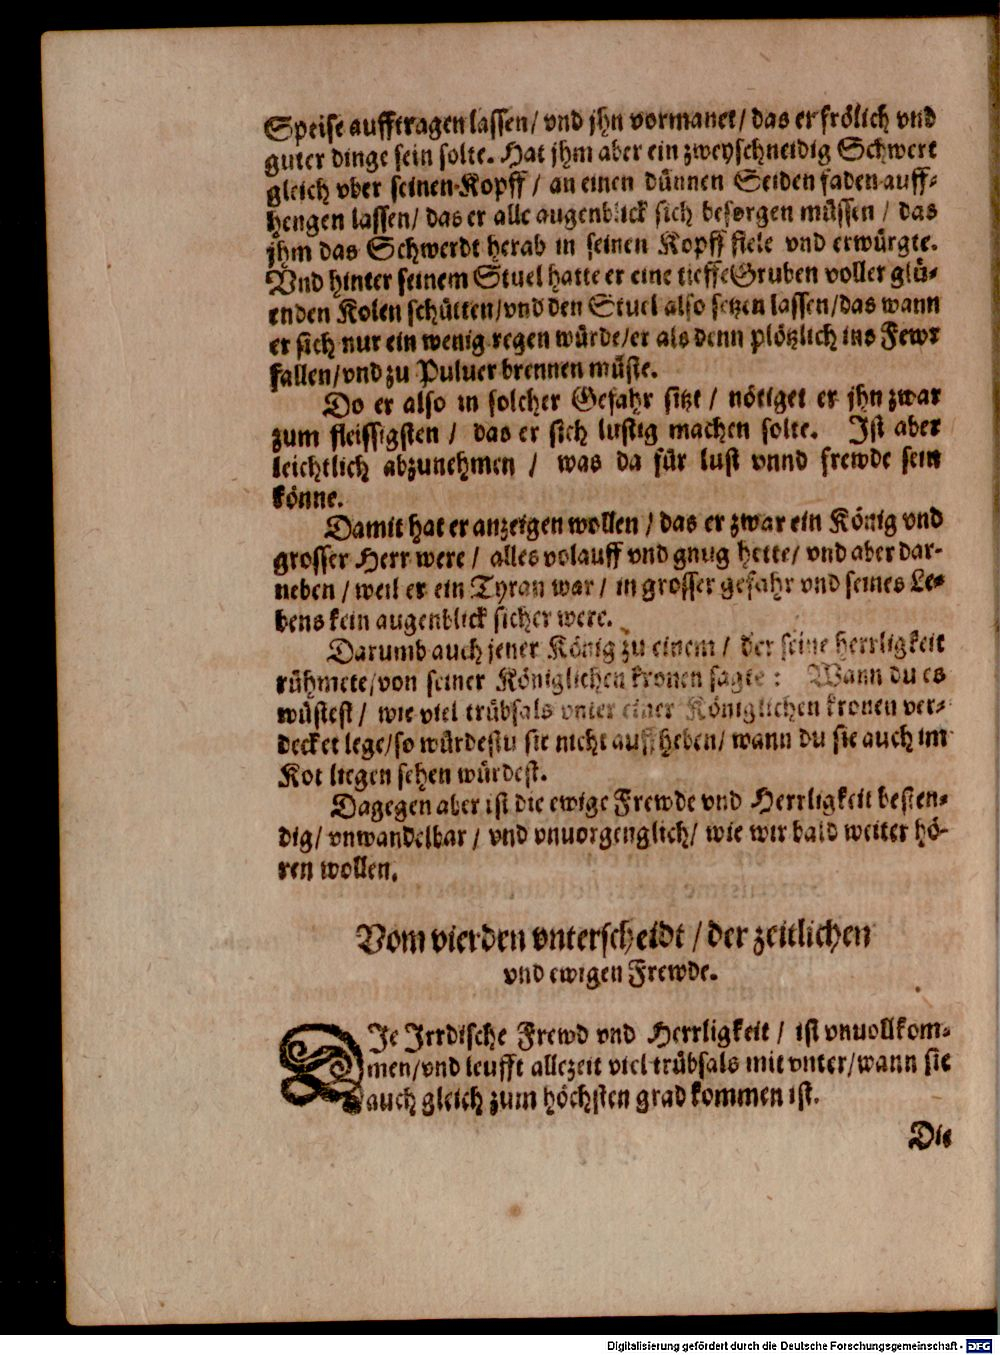 Speise aufftragen lassen/ vnd jhn vormanet/ das er frölich vnd
guter dinge sein solte. Hat jhm aber ein zweyschneidig Schwert
gleich vber seinen Kopff / an einen dünnen Seiden faden auff-
hengen lassen/ das er alle augenblick sich besorgen müssen / das
jhm das Schwerdt herab in seinen Kopff fiele vnd erwürgte.
Vnd hinter seinem Stuel hatte er eine tieffe Gruben voller glü-
enden Kolen schütten/vnd den Stuel also setzen lassen/das wann
er sich nur ein wenig regen würde/er als denn plötzlich ins Fewr
fallen/vnd zu Puluer brennen müste.
Do er also in solcher Gefahr sitzt / nötiget er jhn zwar
zum fleissigsten / das er sich lustig machen solte. Ist aber
leichtlich abzunehmen / was da für lust vnnd frewde sein
könne.
Damit hat er anzeigen wollen / das er zwar ein König vnd
grosser Herr were / alles volauff vnd gnug hette/ vnd aber dar-
neben / weil er ein Tyran war / in grosser gefahr vnd seines Le-
bens kein augenblick sicher were.
Darumb auch jener König zu einem / der seine herrligkeit
rühmete/von seiner Königlichen kronen sagte : Wann du es
wüstest / wie viel trübsals vnter einer Königlichen kronen ver-
decket lege/so würdestu sie nicht auffheben/ wann du sie auch im
Kot liegen sehen würdest.
Dagegen aber ist die ewige Frewde vnd Herrligkeit besten-
dig/ vnwandelbar / vnd vnuorgenglich/ wie wir bald weiter hö-
ren wollen.
Vom vierden vnterscheidt / der zeitlichen
vnd ewigen Frewde.
DIe Irrdische Frewd vnd Herrligkeit / ist vnuollkom-
men/vnd leufft allezeit viel trübsals mit vnter/wann sie
auch gleich zum höchsten grad kommen ist.
Die
Digitalisierung gefördert durch die Deutsche Forschungsgemeinschaft - DFG